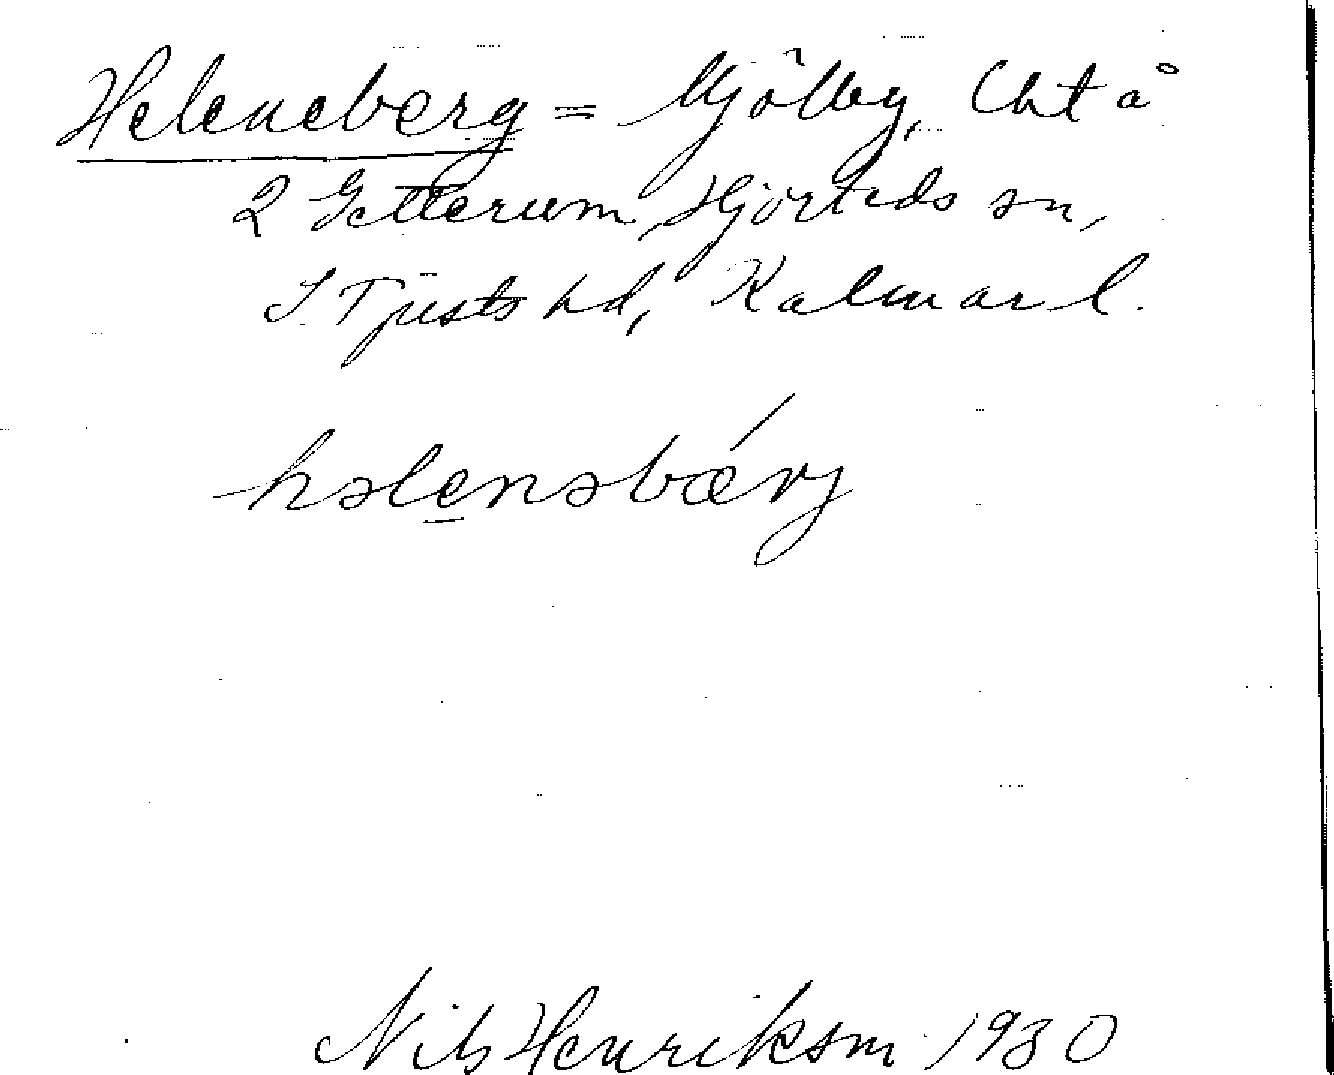 Heleneberg = Mjölby, Lht å
2 Getterum, Hjorteds sn,
S. Tjusts hd, Kalmar l.
həlenəbærj
Nils Henrikson 1930